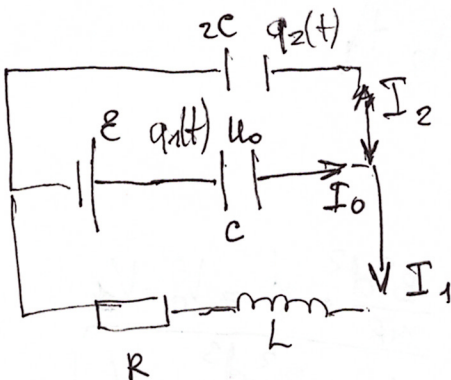 2C q₂(t)
I₂
ℰ q₁(t) u₀
I₀
C
I₁
L
R